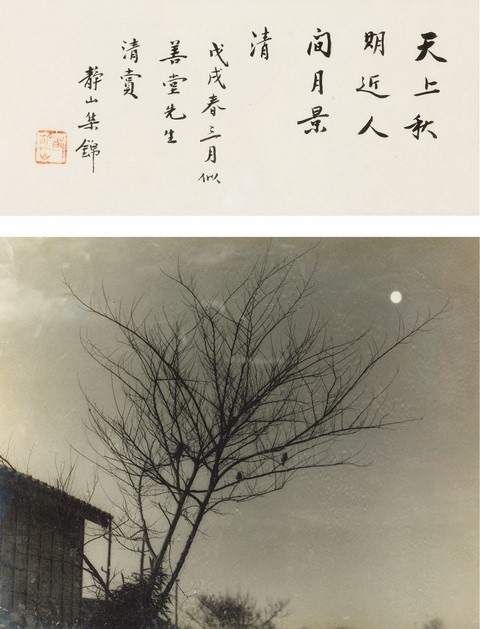 天上秋
期近人
間月景
清
戊戌春三月似
善堂先生
清賞
靜山集錦